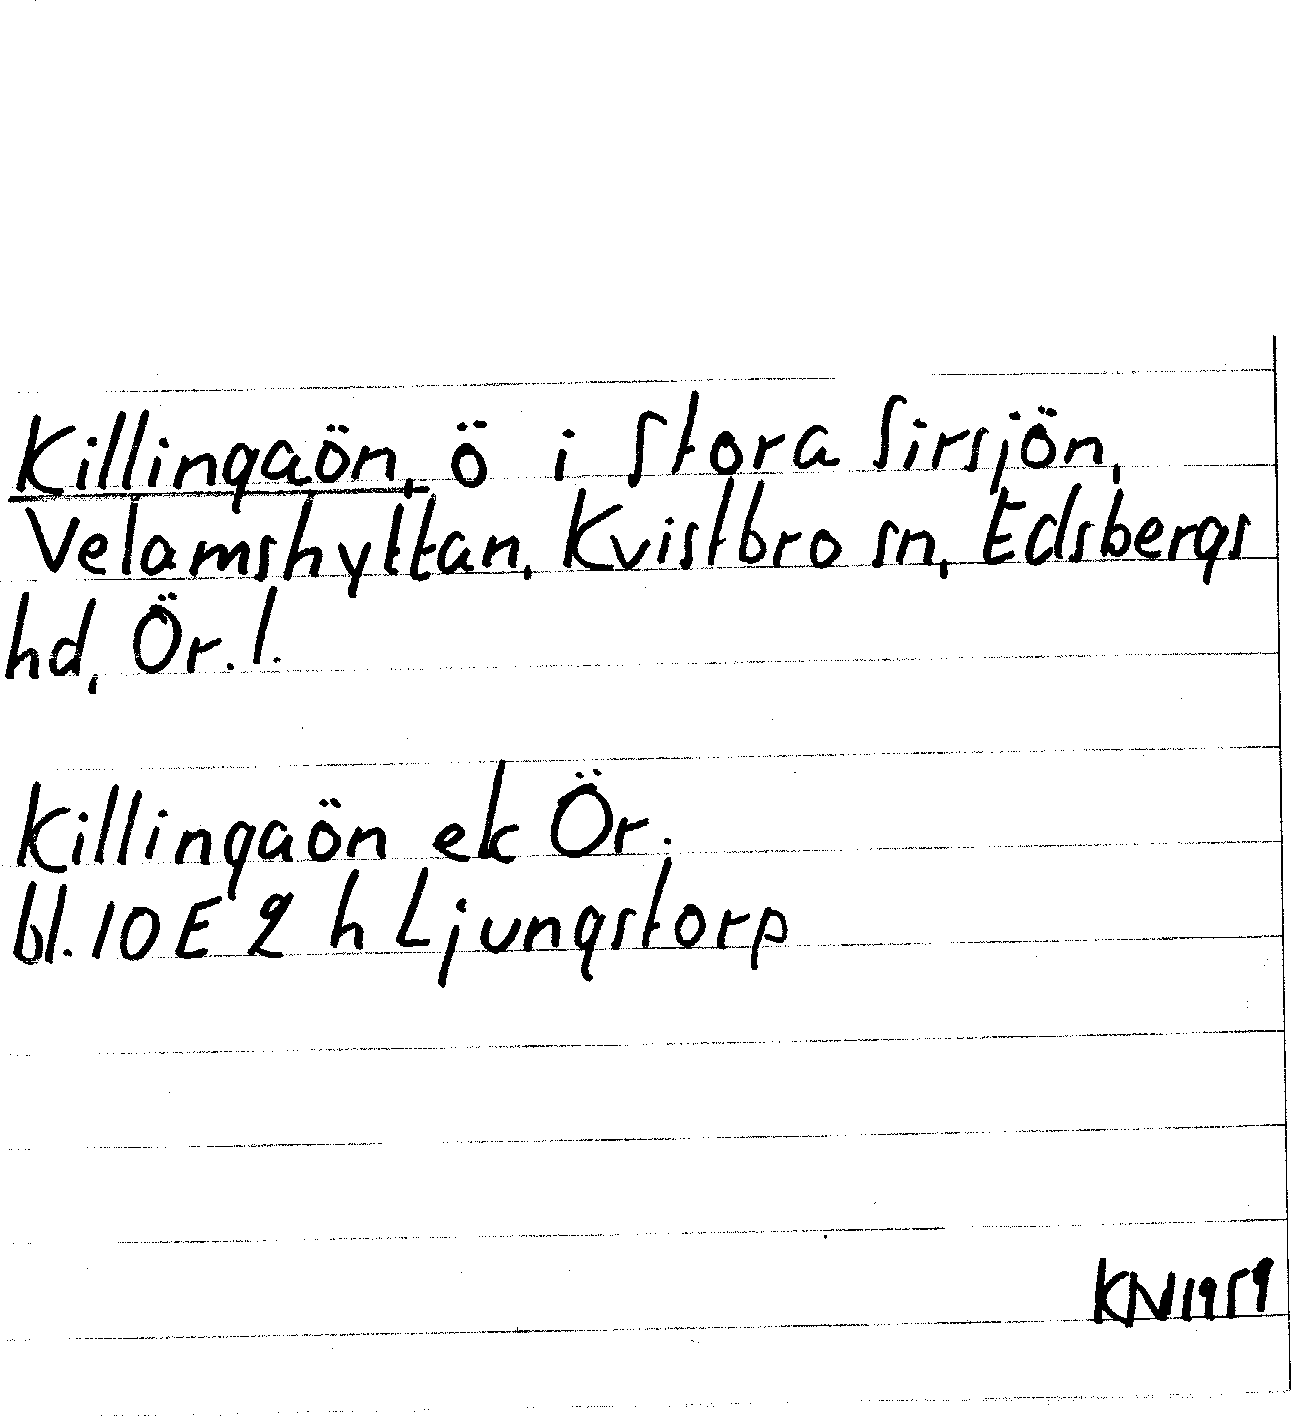 Killingaön, ö i Stora Sirsjön,
Velamshyttan, Kvistbro sn, Edsbergs
hd, Ör. l.
Killingaön ek Ör.
bl. 10 E 2 h Ljungstorp
KN 1959